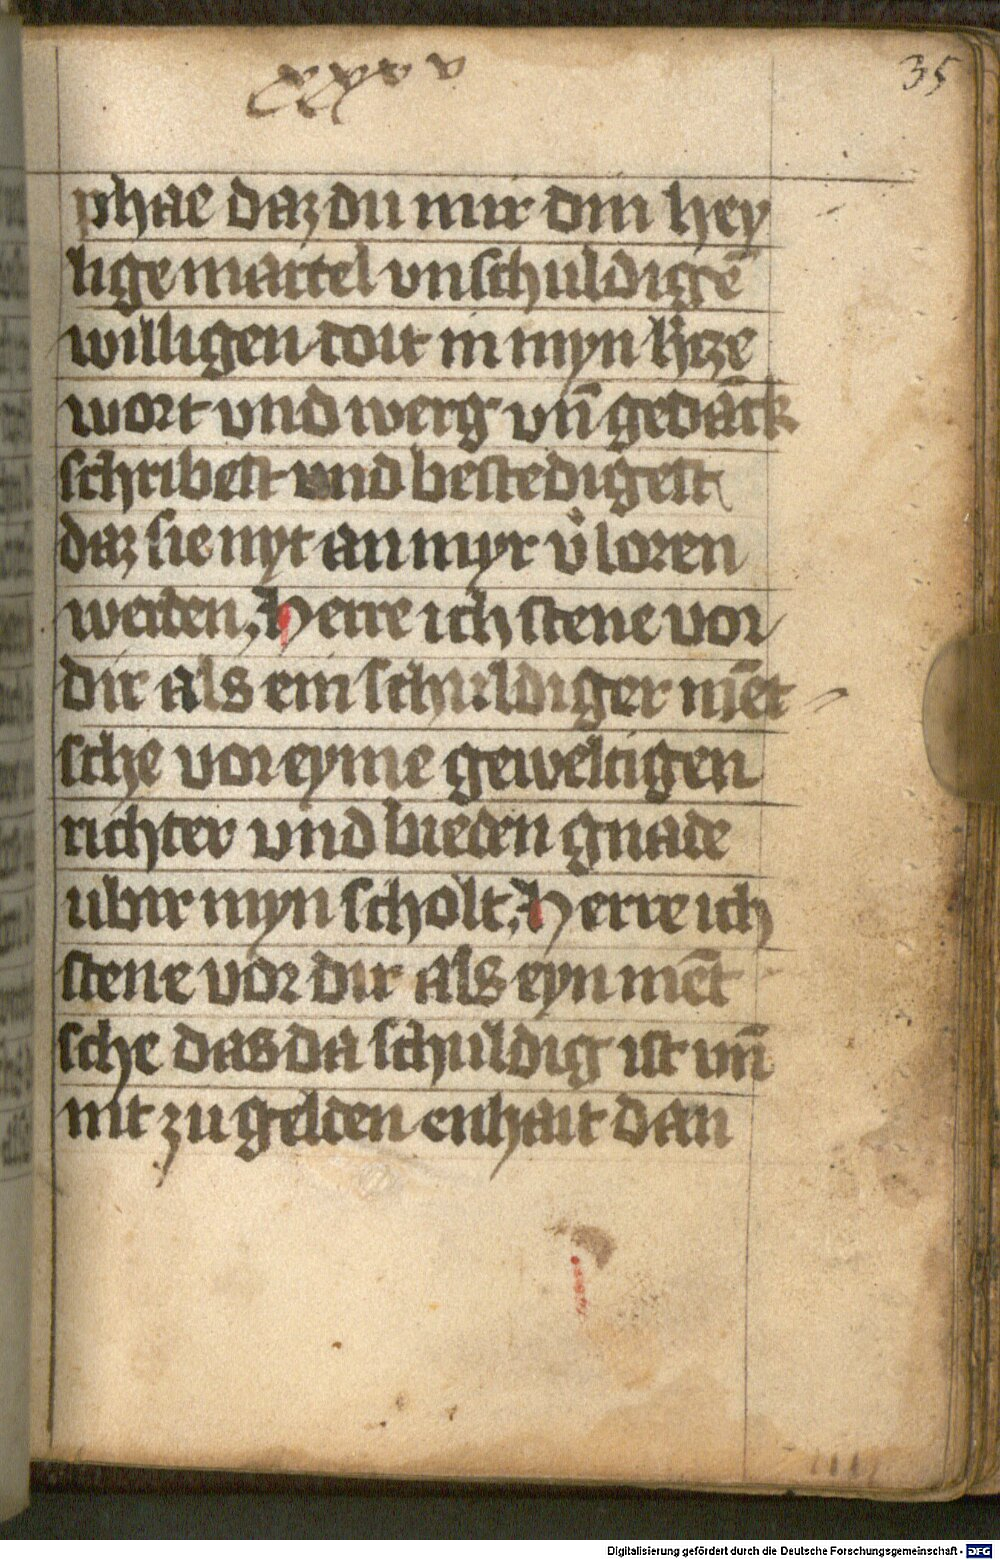 xxxv
35
phae daz du mir din hey
lige martel vnschuldigē
willigen toit in myn h̕cze
wort vnd werg vn̄ gedāck
schribest vnd bestedigest
daz sie nyt an myr v̕loren
werden, Herre ich stene vor
dir als ein schuldiger mēt
sche vor eyme geweltigen
richter vnd bieden gnade
ubir myn scholt, Herre ich
stene vor dir als eyn mēt
sche das da schuldig ist vn̄
nit zu gelden enhait dan
Digitalisierung gefördert durch die Deutsche Forschungsgemeinschaft - DFG